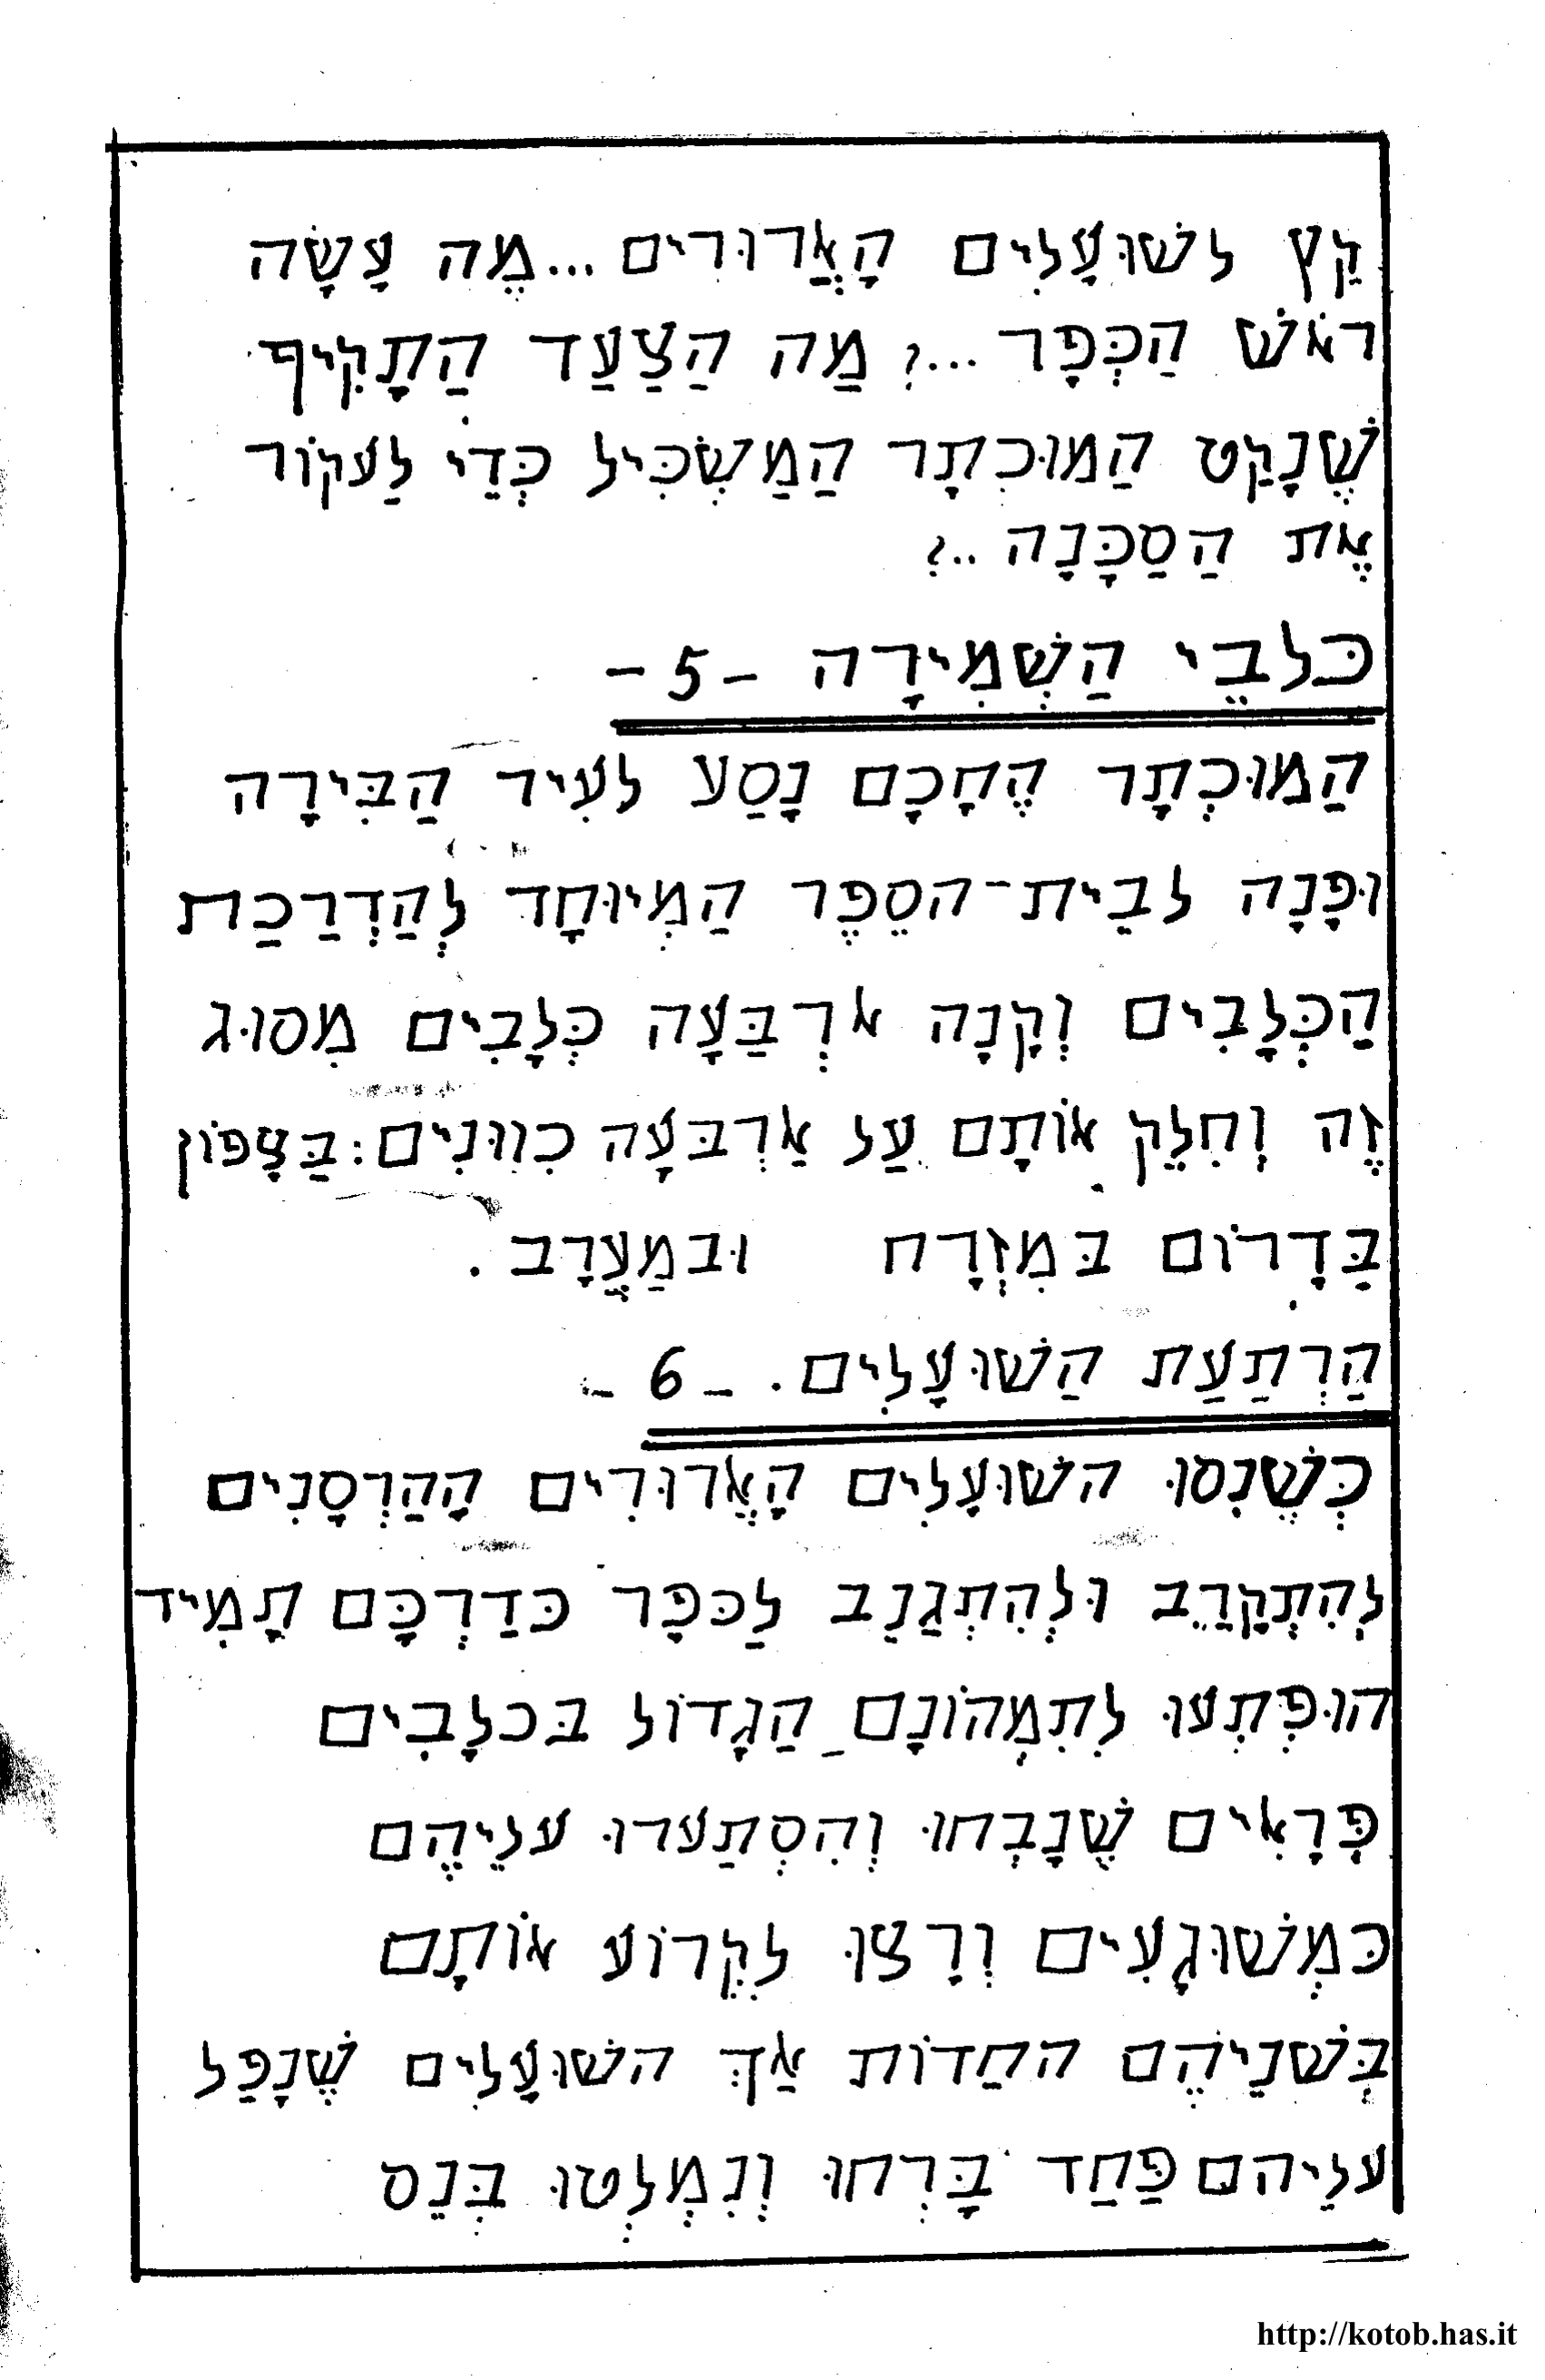 קֵץ לשׁוּעָלִים הָאֲרוּרים...מֶה עָשָׂה
ראֹשׁ הַכְּפָר ...؟ מַה הַצַעַד הַתָקִיף
שֶׁנָקַט הַמוּכתָר הַמַשְׂכִּיל כְּדֵי לַעקוֹר
אֶת הַסַכָּנָה ..؟
כּלבֵי הַשְׁמִירָה -5-
הַמוּכְתָר הֶחָכָם נָסַע לעִיר הַבִּירָה
וּפָּנָה לבֵית-הסֵפֶר הַמְיוּחָד לְהַדְרַכַת
הַכְּלָבִים וְקָנָה ארְבַּעָה כְּלָבִים מִסוּג
זֶה וְחִלֵק אוֹתָם עַל אַרְבּעָה כִווּנִים: בַּצָפוֹן
בַּדָרוֹם בּמִזְרָח וּבמַעֲרָב.
הַרְתַעַת הַשׁוּעָלִים. - 6 -
כְּשֶׁנִסוּ השׁוּעָלִים הָאֲרוּרִים הָהַרְסָנִים
לְהִתְקָרֵב וּלְהִתְגַנֵב לַכּפָר כּדַרְכָּם תָמִיד
הוּפְתְעוּ לתִמְהוֹנָם הַגָדוֹל בּכלָבִים
פְּרָאִים שֶׁנָבְחוּ וְהִסְתַערוּ עליֵהֶם
כּמְשׁוּגָעִים וְרָצוּ לקְרוֹע אוֹתָם
בְּשׁנֵיהֶם החַדוֹת אַךְ השׁוּעָלִים שֶׁנָפַל
עלֵיהם פַּחַד בָּרְחוּ וְנִמְלְטוּ בְּנֵס
http://kotob.has.it